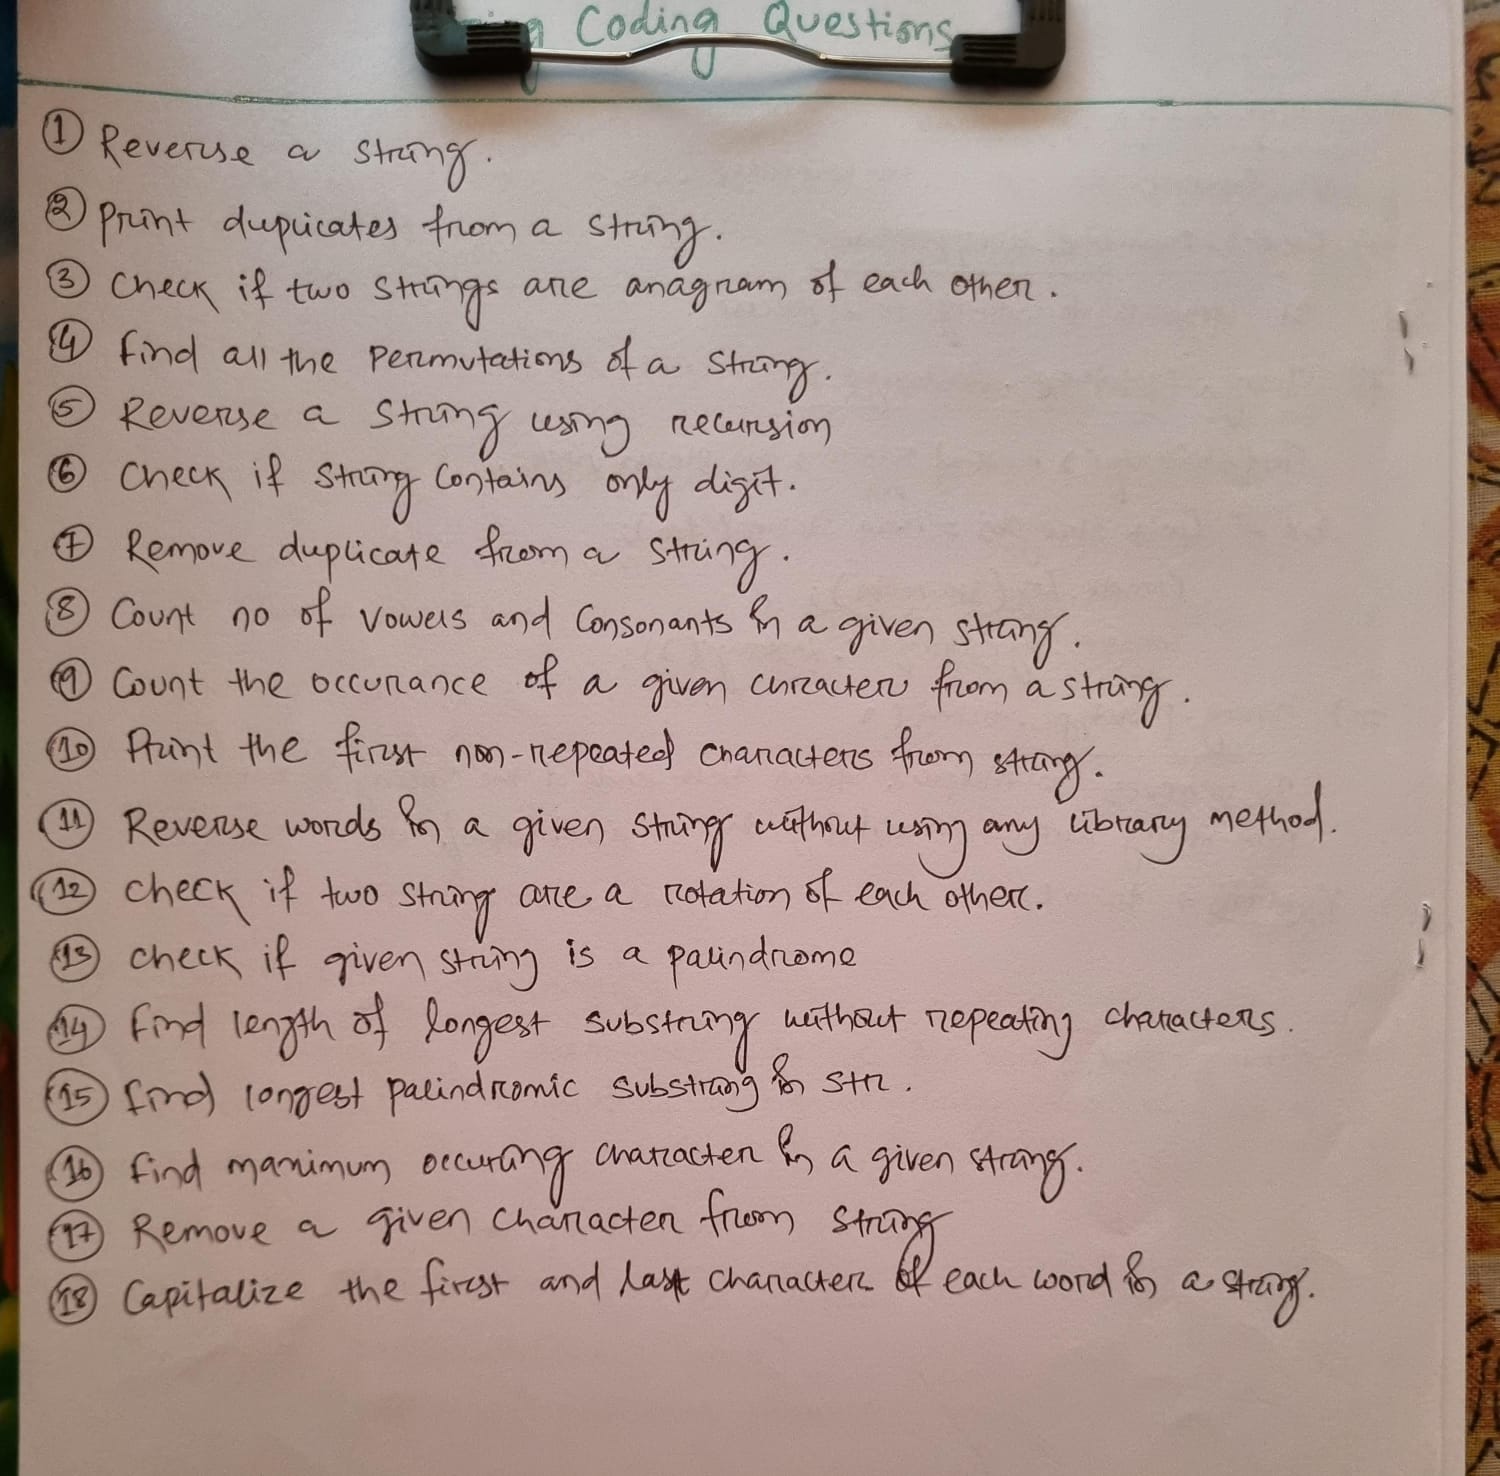 Coding Questions
① Reverse a string.
② Print duplicates from a string.
③ Check if two strings are anagram of each other.
④ find all the permutations of a string.
⑤ Reverse a string using recursion
⑥ Check if string contains only digit.
⑦ Remove duplicate from a string.
⑧ Count no of vowels and consonants in a given string.
⑨ Count the occurance of a given chracter from a string.
⑩ Print the first non-repeated characters from string.
⑪ Reverse words in a given string without using any library method.
⑫ check if two string are a rotation of each other.
⑬ check if given string is a palindrome
⑭ find length of longest substring without repeating characters.
⑮ find longest palindromic substring in str.
⑯ find maximum occuring character in a given string.
⑰ Remove a given character from string
⑱ Capitalize the first and last character of each word in a string.